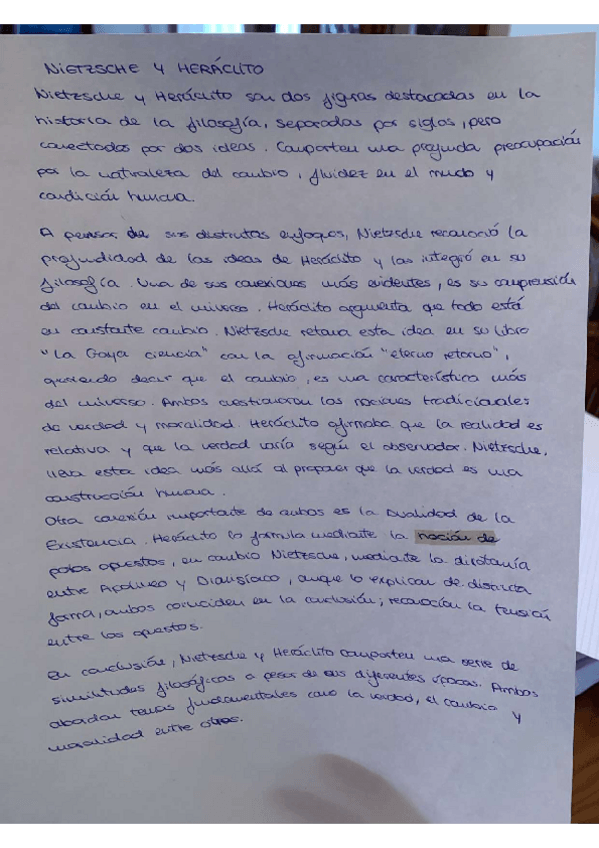 NIETZSCHE Y HERÁCLITO
Nietzsche y Heráclito son dos figuras destacadas en la
historia de la filosofía, separadas por siglos, pero
conectados por dos ideas. Comparten una profunda preocupación
por la naturaleza del cambio, fluidez en el mundo y
condición humana.
A pensar de sus distintos enfoques, Nietzsche reconoció la
profundidad de las ideas de Heráclito y las integró en su
filosofía. Una de sus conexiones más evidentes, es su comprensión
del cambio en el universo. Heráclito argumenta que todo está
en constante cambio. Nietzsche retoma esta idea en su libro
"La Gaya ciencia" con la afirmación "eterno retorno",
queriendo decir que el cambio, es una característica más
del universo. Ambos cuestionaron las nociones tradicionales
de verdad y moralidad. Heráclito afirmaba que la realidad es
relativa y que la verdad varía según el observador. Nietzsche,
lleva esta idea más allá al proponer que la verdad es una
construcción humana.
Otra conexión importante de ambos es la Dualidad de la
Existencia. Heráclito lo formula mediante la noción de
polos opuestos, en cambio Nietzsche, mediante la dicotomía
entre Apolíneo y Dionisíaco, aunque lo explican de distinta
forma, ambos coinciden en la conclusión; reconocían la tensión
entre los opuestos.
En conclusión, Nietzsche y Heráclito comparten una serie de
similitudes filosóficas a pesar de sus diferentes épocas. Ambos
abordan temas fundamentales como la verdad, el cambio y
moralidad entre otros.